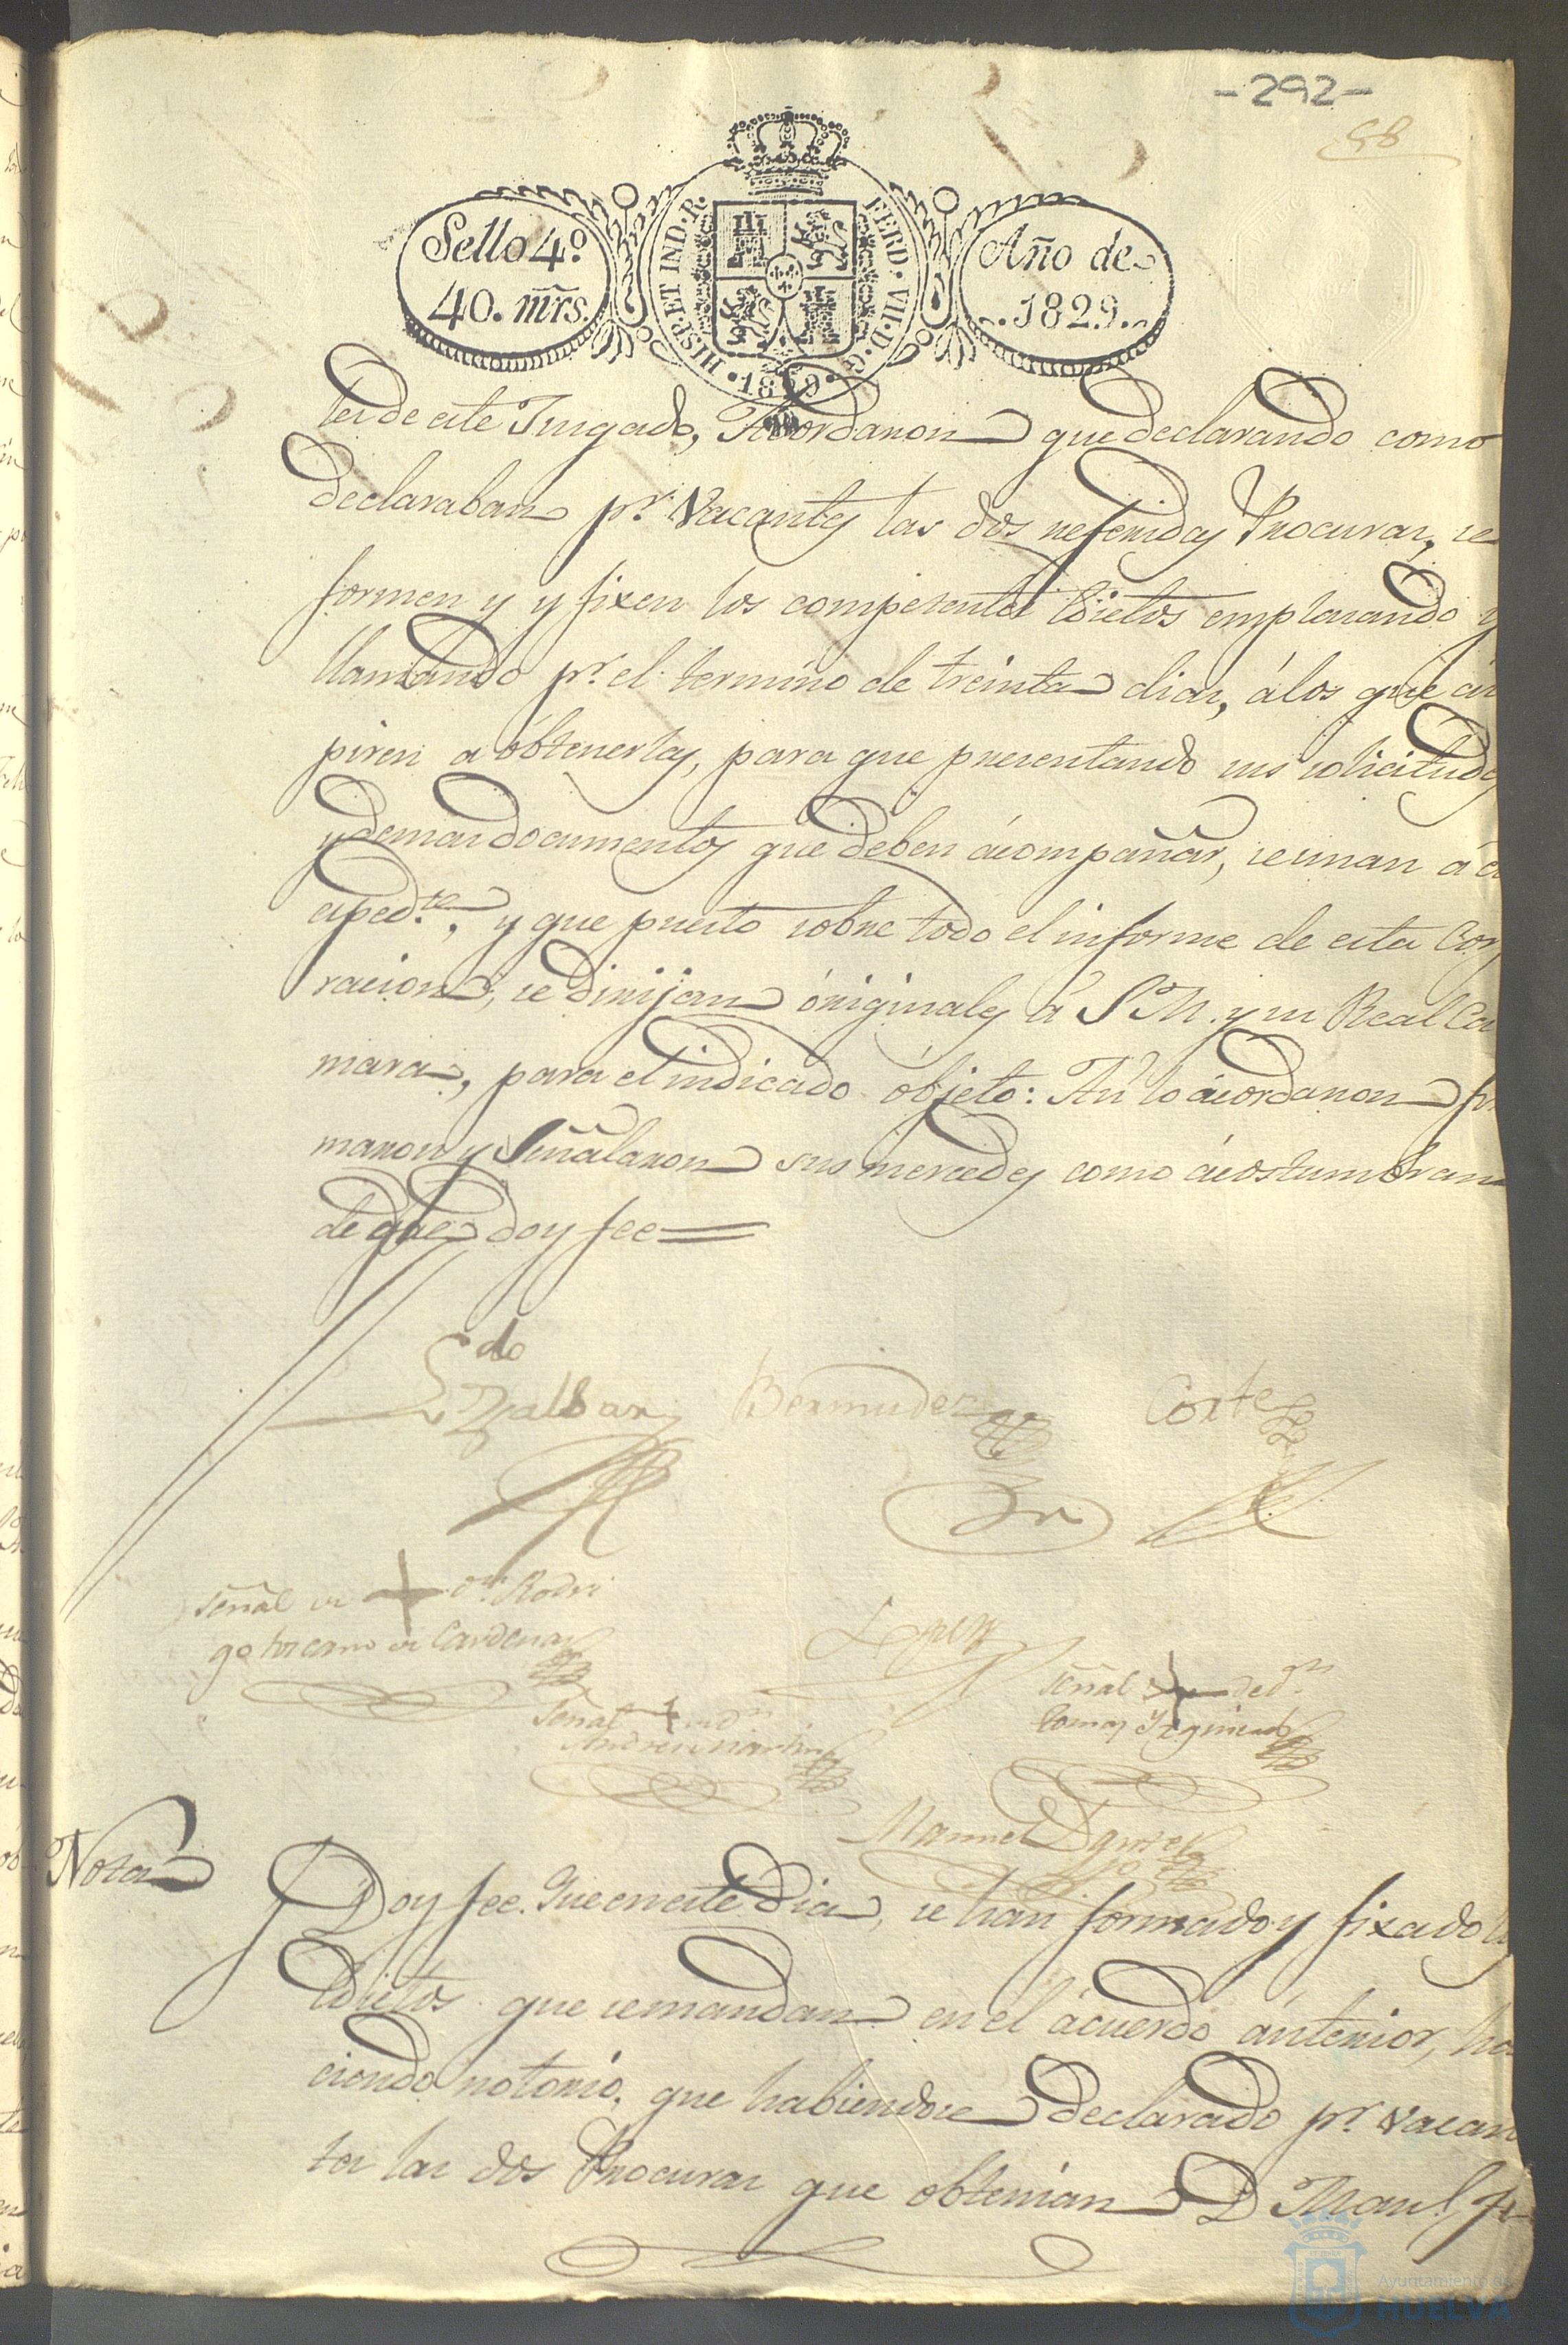 -292-
58
Sello 4º.
40. mrs.
HISP. ET IND. R.
FERD. VII. D. G.
1829
Año de
.1829.
tes de este Jusgado, Acordaron que declarando como
declaraban pr. Vacantes las dos referidas Procuras, se
formen y y fixen los competentes Edictos emplasando y
llamando pr. el termino de treinta dias, á los que as
piren a óbtenerlas, para que presentando sus solicitudes
y demas documentos que deben ácompañar, se unan á
esped.te, y que puesto sobre todo el informe de esta Corp
racion, se dirijan óriginales á S. M. y su Real Ca
mara, para el indicado óbjeto: Asi lo ácordaron fir
maron y Señalaron sus mercedes como ácostumbran
de que doy fee=
Ldo
Zalbar Bermudez Cortes
Señal de + Dn. Rodri
go toscano de Cardenas
Lopez
Señal + de Dn.
Tomas Yzquierdo
Señal + de Dn
Andres Martin
Manuel
Nota
Doy fee. Que en este Dia, se han formado y fixado
Edictos que se mandan en él ácuerdo ánterior, ha
ciendo notorio, que habiendose declarado pr. vacan
tes las dos Procuras que obtenian D Manl.
Ayuntamiento de
HUELVA